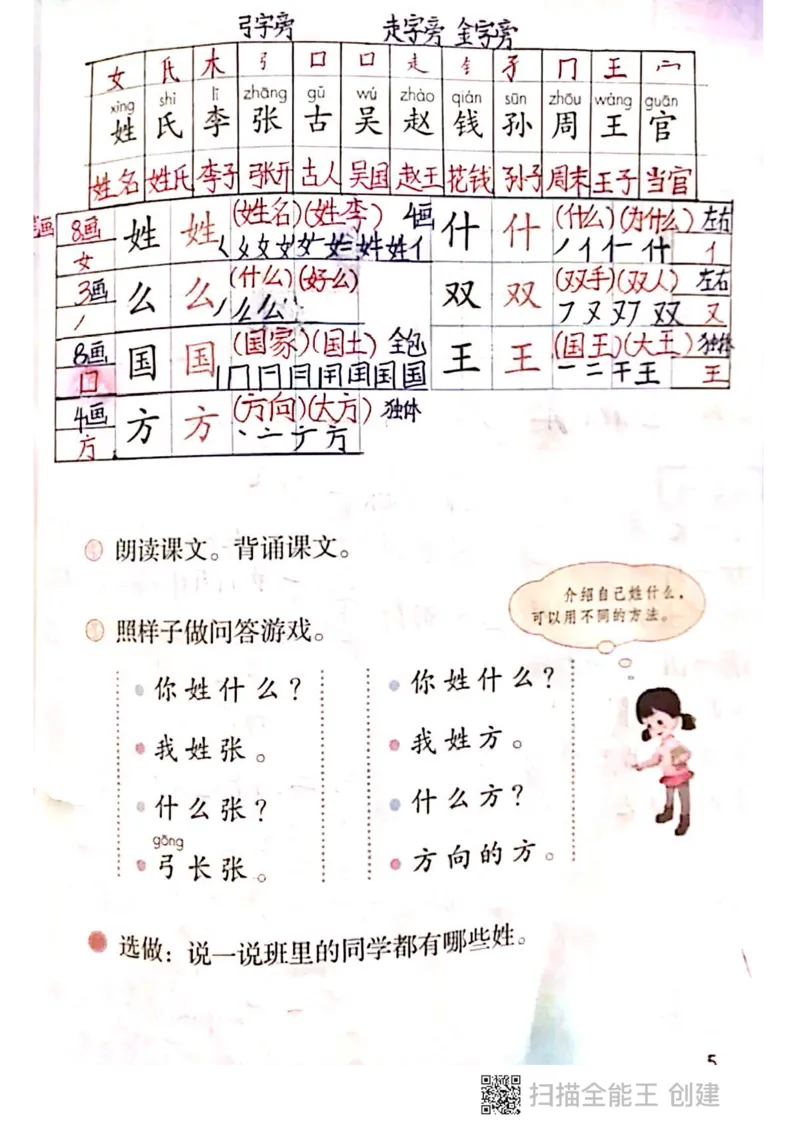 弓字旁 走字旁 金字旁
女 氏 木 弓 口 口 走 钅 子 冂 王 宀
xìng shì lǐ zhāng gǔ wú zhào qián sūn zhōu wáng guān
姓 氏 李 张 古 吴 赵 钱 孙 周 王 官
姓名 姓氏 李子 张开 古人 吴国 赵王 花钱 孙子 周末 王子 当官
8画 姓 姓 (姓名)(姓李) 4画 什 什 (什么)(为什么) 左右
女 亻 丿 亻 仁 什 亻
3画 么 么 (什么)(好么) 双 双 (双手)(双人) 左右
丿 丿 么 么 フ 又 双 又
8画 国 国 (国家)(国土) 全包 王 王 (国王)(大王) 独体
囗 丨 冂 国 一 二 干 王 王
4画 方 方 (方向)(大方) 独体
方 丶 亠 方
朗读课文。背诵课文。
介绍自己姓什么,
可以用不同的方法。
照样子做问答游戏。
你姓什么?
我姓张。
什么张?
gōng
弓长张。
你姓什么?
我姓方。
什么方?
方向的方。
选做:说一说班里的同学都有哪些姓。
5
扫描全能王 创建